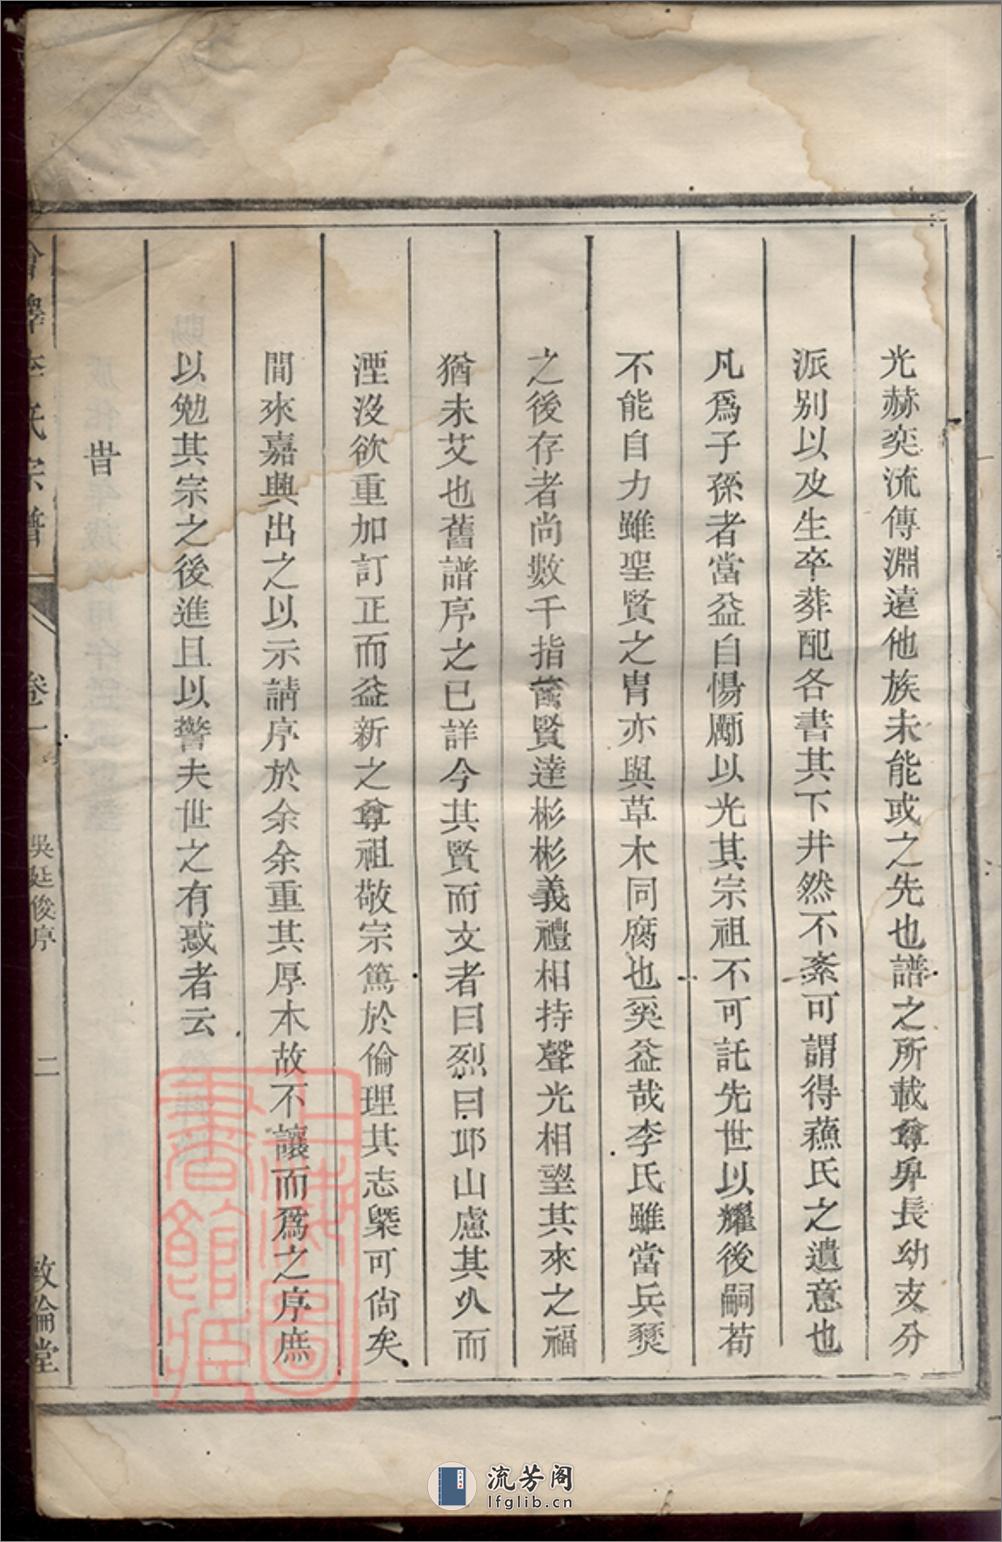 光赫奕流傳淵遠他族未能或之先也譜之所載尊卑長幼支分
派別以及生卒葬配各書其下井然不紊可謂得蘇氏之遺意也
凡爲子孫者當益自惕勵以光其宗祖不可託先世以耀後嗣苟
不能自力雖聖賢之胄亦與草木同腐也奚益哉李氏雖當兵燹
之後存者尚數千指雋賢達彬彬義禮相持聲光相望其來之福
猶未艾也舊譜序之已詳今其賢而文者曰烈曰邛山慮其久而
湮沒欲重加訂正而益新之尊祖敬宗篤於倫理其志槩可尙矣
間來嘉興出之以示請序於余余重其厚本故不讓而爲之序庶
以勉其宗之後進且以警夫世之有惑者云
旹
李氏宗譜
卷一
吳廷俊序
二
敦倫堂
上海圖書館藏
流芳阁
lfglib.cn